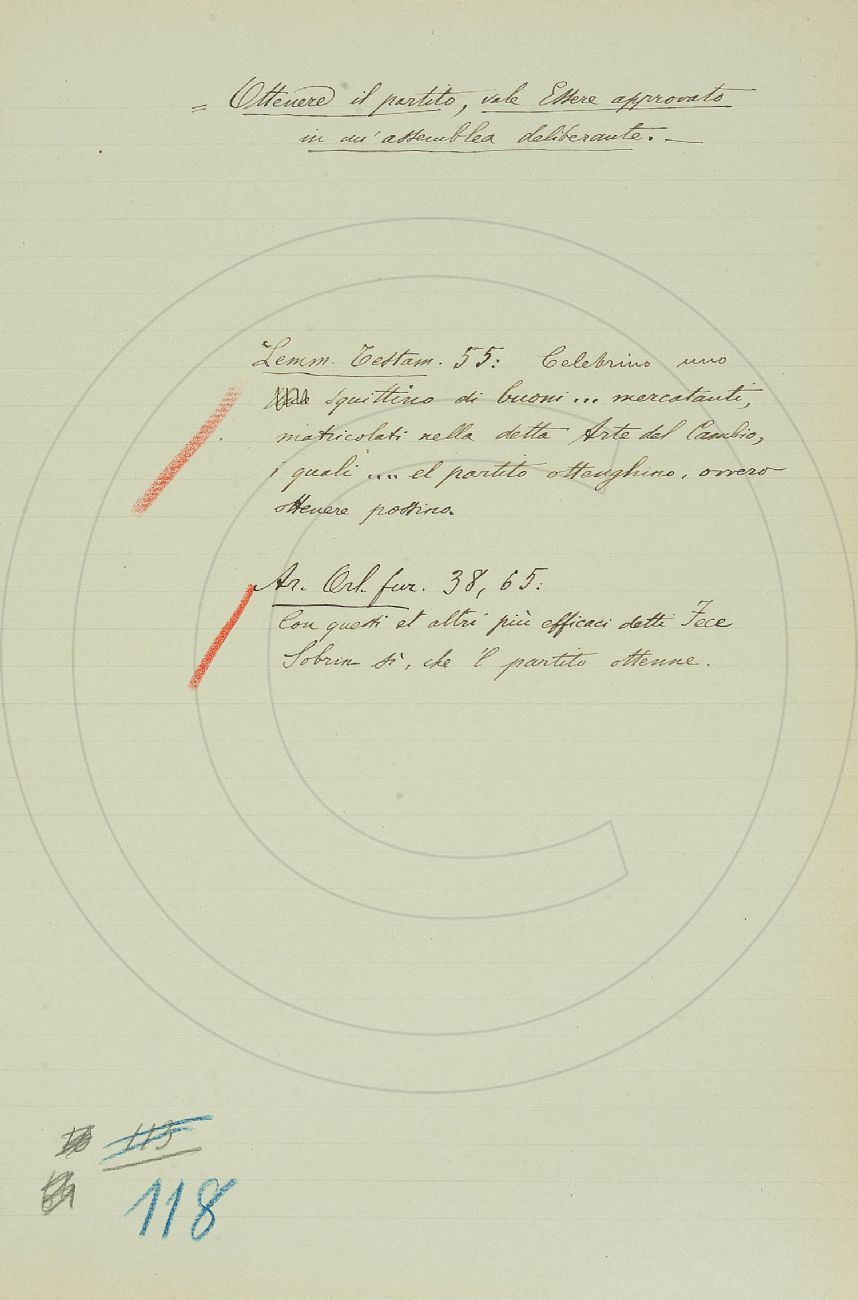 = Ottenere il partito, vale Essere approvato
in un' assemblea deliberante. —
Lemm. Testam. 55: Celebrino uno
squittino di buoni ... mercatanti,
matricolati nella detta Arte del Cambio,
i quali .... el partito ottenghino, ovvero
ottenere possino.
Ar. Orl. fur. 38, 65:
Con questi et altri più efficaci detti Fece
Sobrin sì, che 'l partito ottenne.
113
118